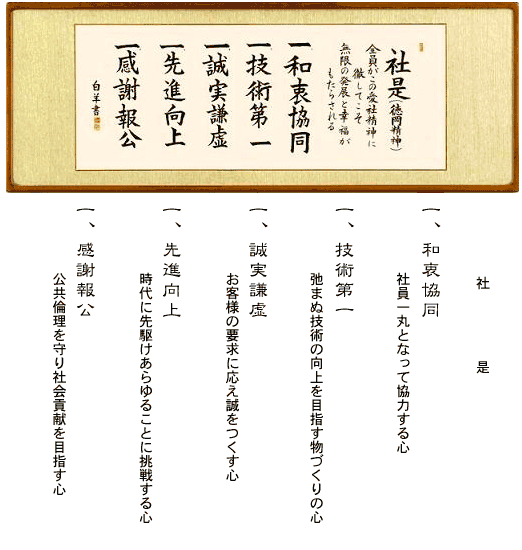 社是(徳岡精神)
全員がこの愛社精神に
徹してこそ
無限の発展と幸福が
もたらされる
一和衷協同
一技術第一
一誠実謙虚
一先進向上
一感謝報公
白羊書
社是
一、和衷協同
社員一丸となって協力する心
一、技術第一
弛まぬ技術の向上を目指す物づくりの心
一、誠実謙虚
お客様の要求に応え誠をつくす心
一、先進向上
時代に先駆けあらゆることに挑戦する心
一、感謝報公
公共倫理を守り社会貢献を目指す心